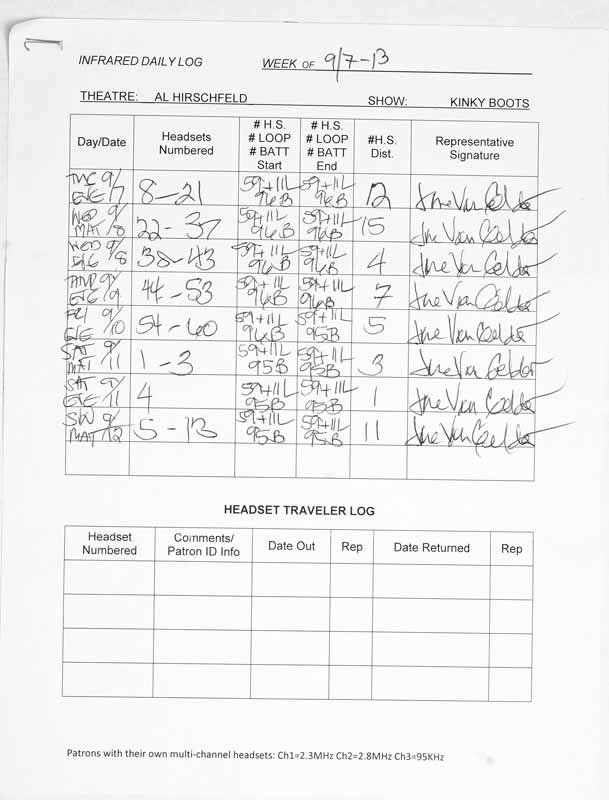 INFRARED DAILY LOG WEEK OF 9/7-13
THEATRE: AL HIRSCHFELD SHOW: KINKY BOOTS
Day/Date Headsets Numbered # H.S. # LOOP # BATT Start # H.S. # LOOP # BATT End #H.S. Dist. Representative Signature
TUE 9/7 EVE 8-21 59+11L 96B 59+11L 96B 12 Jane Van Gelder
WED 9/8 MAT 22-37 59+11L 96B 59+11L 96B 15 Jane Van Gelder
WED 9/8 EVE 38-43 59+11L 96B 59+11L 96B 4 Jane Van Gelder
THU 9/9 EVE 44-53 59+11L 96B 59+11L 96B 7 Jane Van Gelder
FRI 9/10 EVE 54-60 59+11L 96B 59+11L 95B 5 Jane Van Gelder
SAT 9/11 MAT 1-3 59+11L 95B 59+11L 95B 3 Jane Van Gelder
SAT 9/11 EVE 4 59+11L 95B 59+11L 95B 1 Jane Van Gelder
SUN 9/12 MAT 5-13 59+11L 95B 59+11L 95B 11 Jane Van Gelder
HEADSET TRAVELER LOG
Headset Numbered Comments/ Patron ID Info Date Out Rep Date Returned Rep
Patrons with their own multi-channel headsets: Ch1=2.3MHz Ch2=2.8MHz Ch3=95KHz